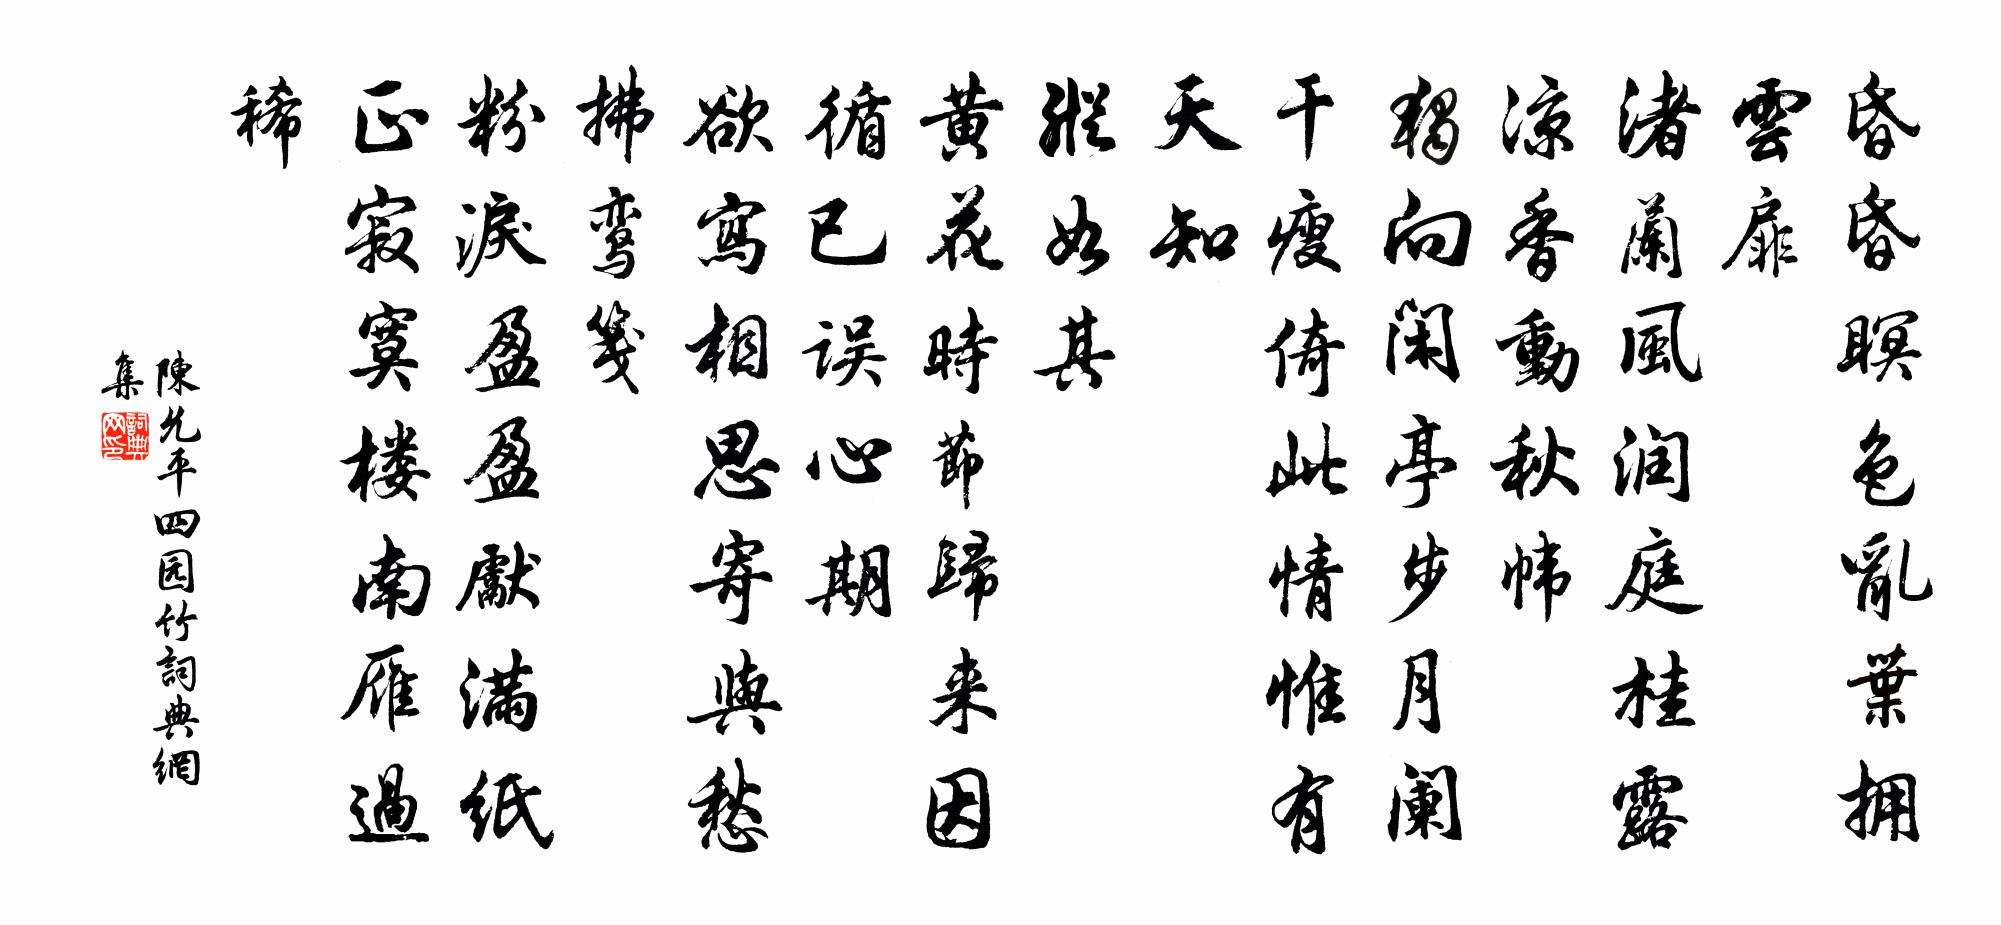 昏昏暝色亂葉拥
雲扉
渚蘭風润庭桂露
凉香動秋帏
獨向闲亭步月阑
干瘦倚此情惟有
天知
縱如其
黄花時節歸来因
循已误心期
欲寫相思寄與愁
拂鸾箋
粉淚盈盈獻满纸
正寂寞楼南雁過
稀
陳允平四园竹詞典網
集
詞典网印